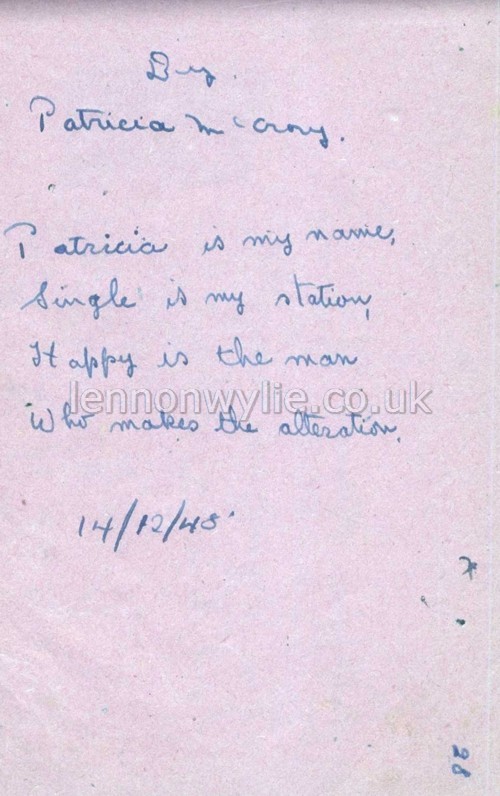 By.
Patricia McCrory.
Patricia is my name,
Single is my station,
Happy is the man
lennonwylie.co.uk
Who makes the alteration.
14/12/48
28